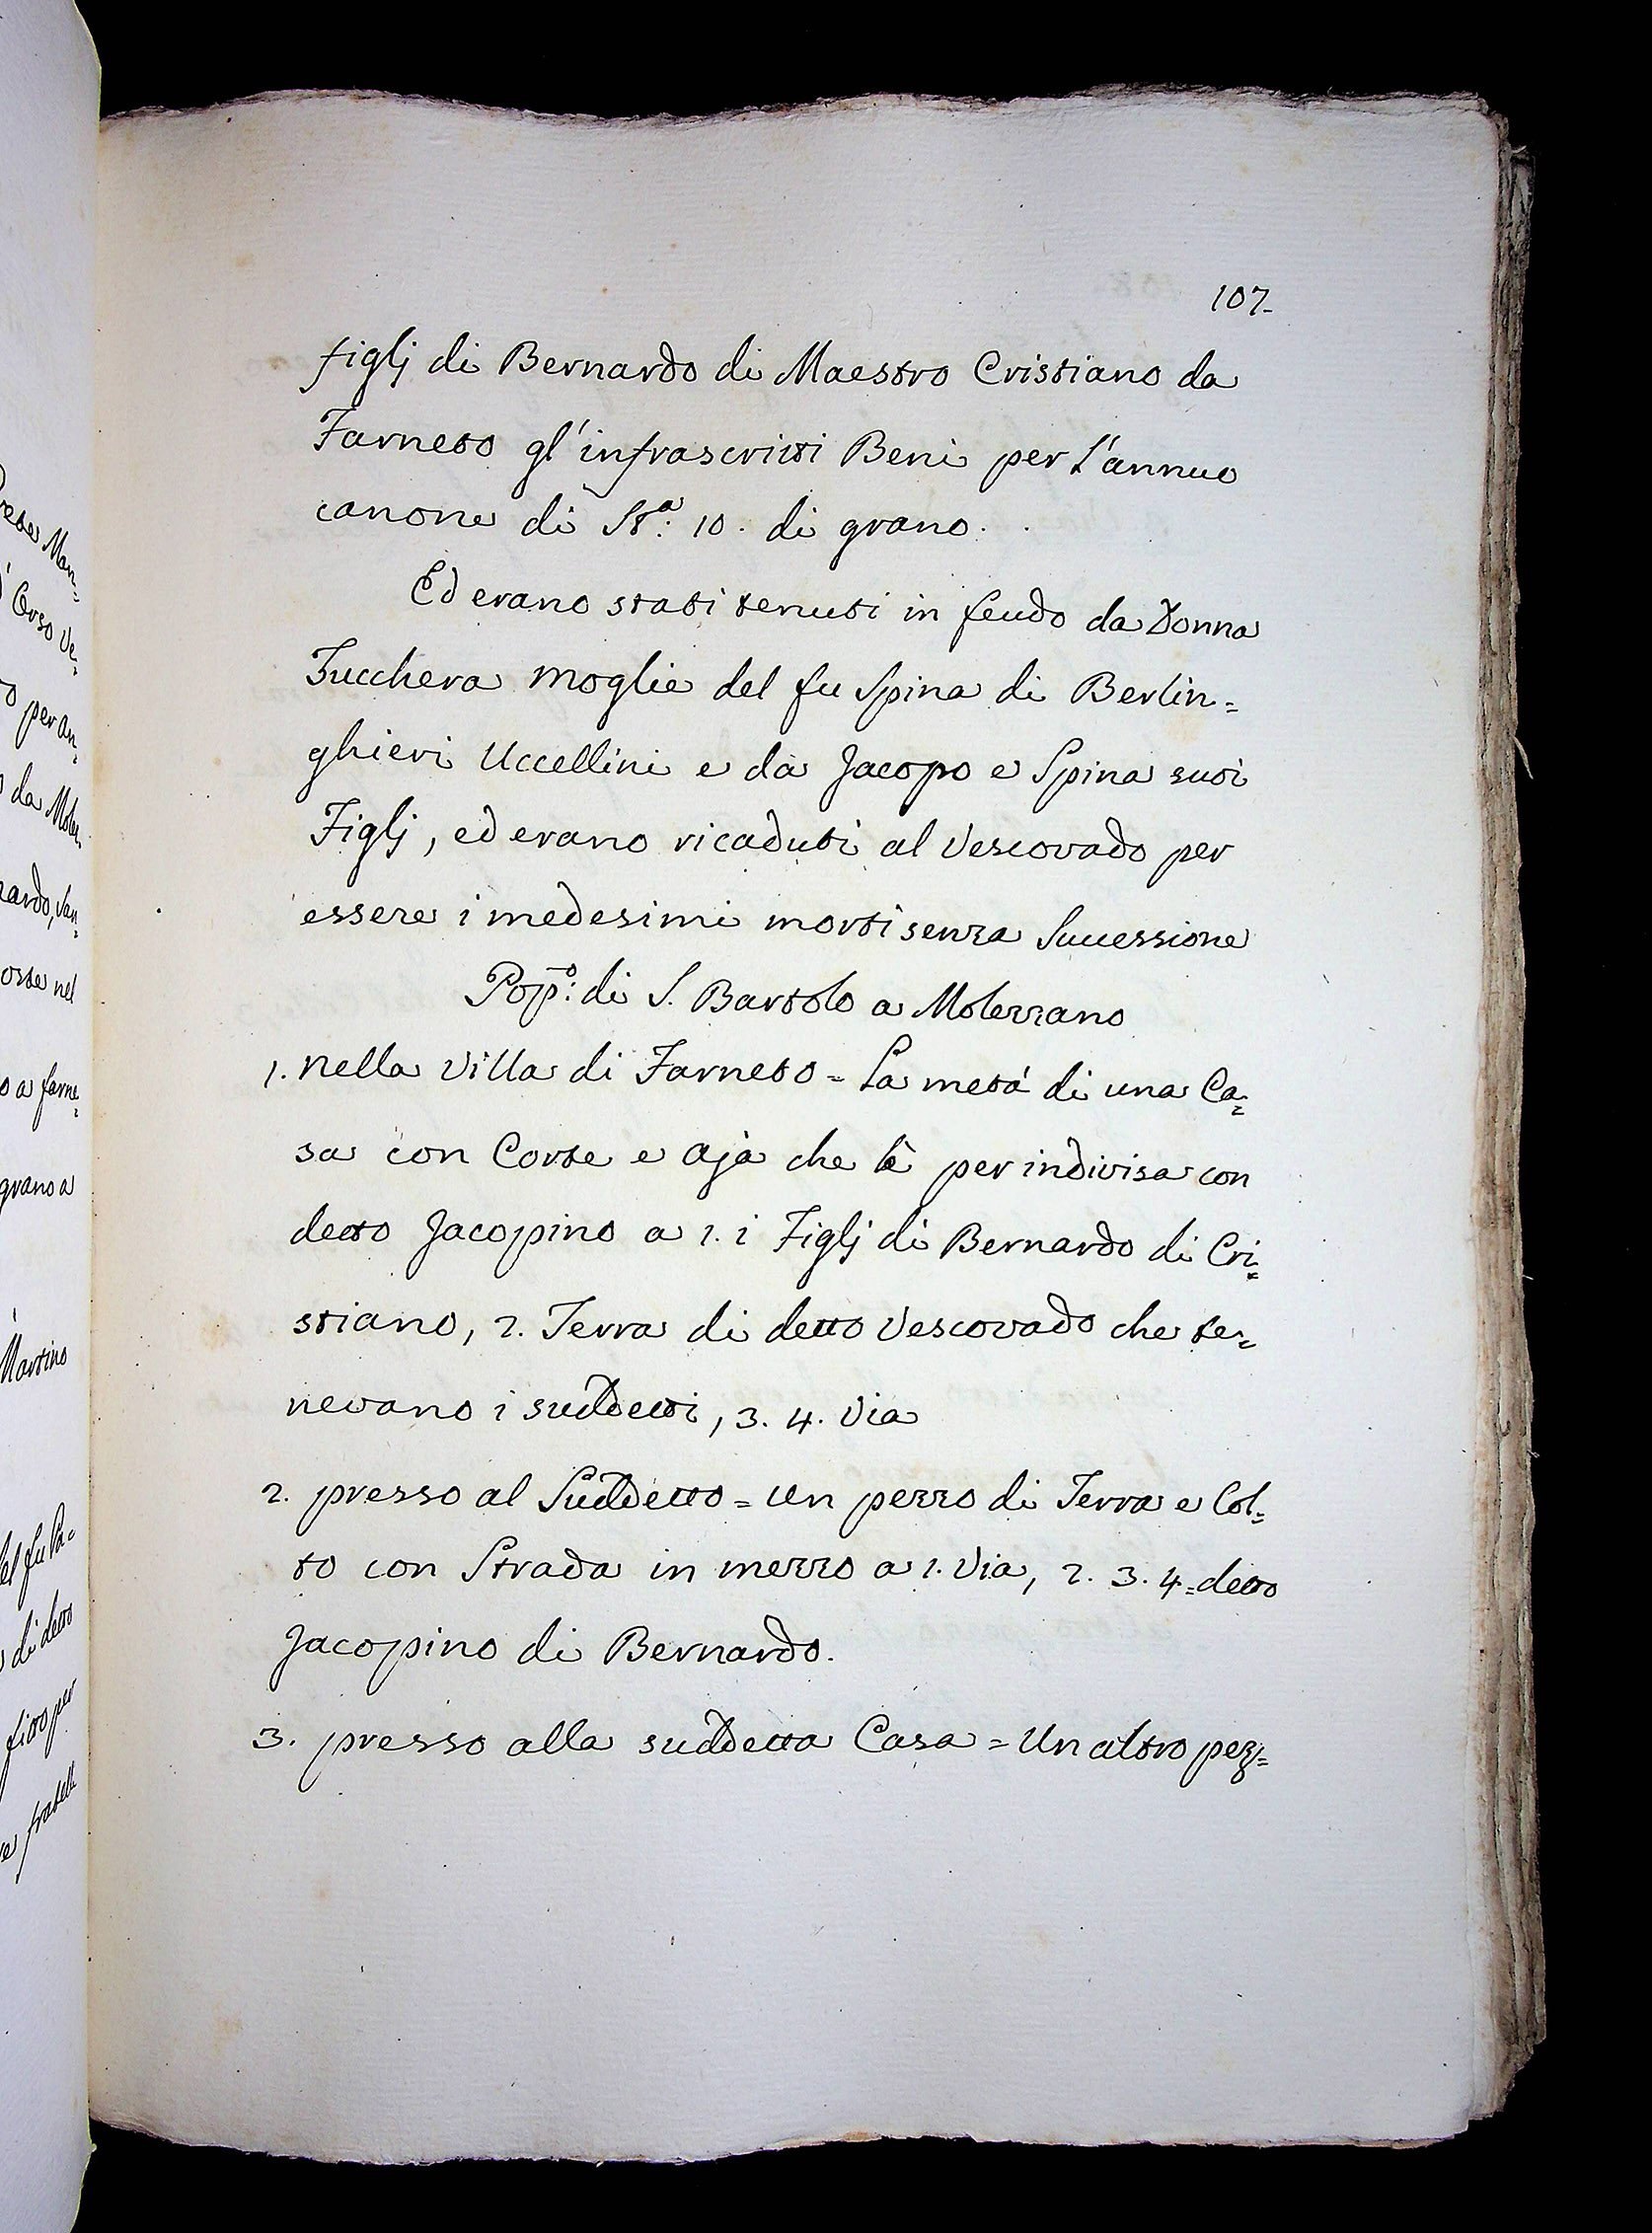 107.
figlj di Bernardo di Maestro Cristiano da
Farneto gl'infrascritti Beni per l'annuo
canone di St.ª 10. di grano.
Ed erano stati tenuti in feudo da Donna
Zucchera moglie del fu Spina di Berlin=
ghieri Uccellini e da Jacopo e Spina suoi
Figlj, ed erano ricaduti al Vescovado per
essere i medesimi morti senza Successione
Pop.º di S. Bartolo a Molezzano
1. nella Villa di Farneto = La metà di una Ca=
sa con Corte e aja che è per indivisa con
detto Jacopino a 1. i Figlj di Bernardo di Cri=
stiano, 2. Terra di detto Vescovado che te=
nevano i suddetti, 3. 4. Via
2. presso al Suddetto = Un pezzo di Terra e Col=
to con Strada in mezzo a 1. Via, 2. 3. 4 = detto
Jacopino di Bernardo.
3. presso alla suddetta Casa = Un altro pez=